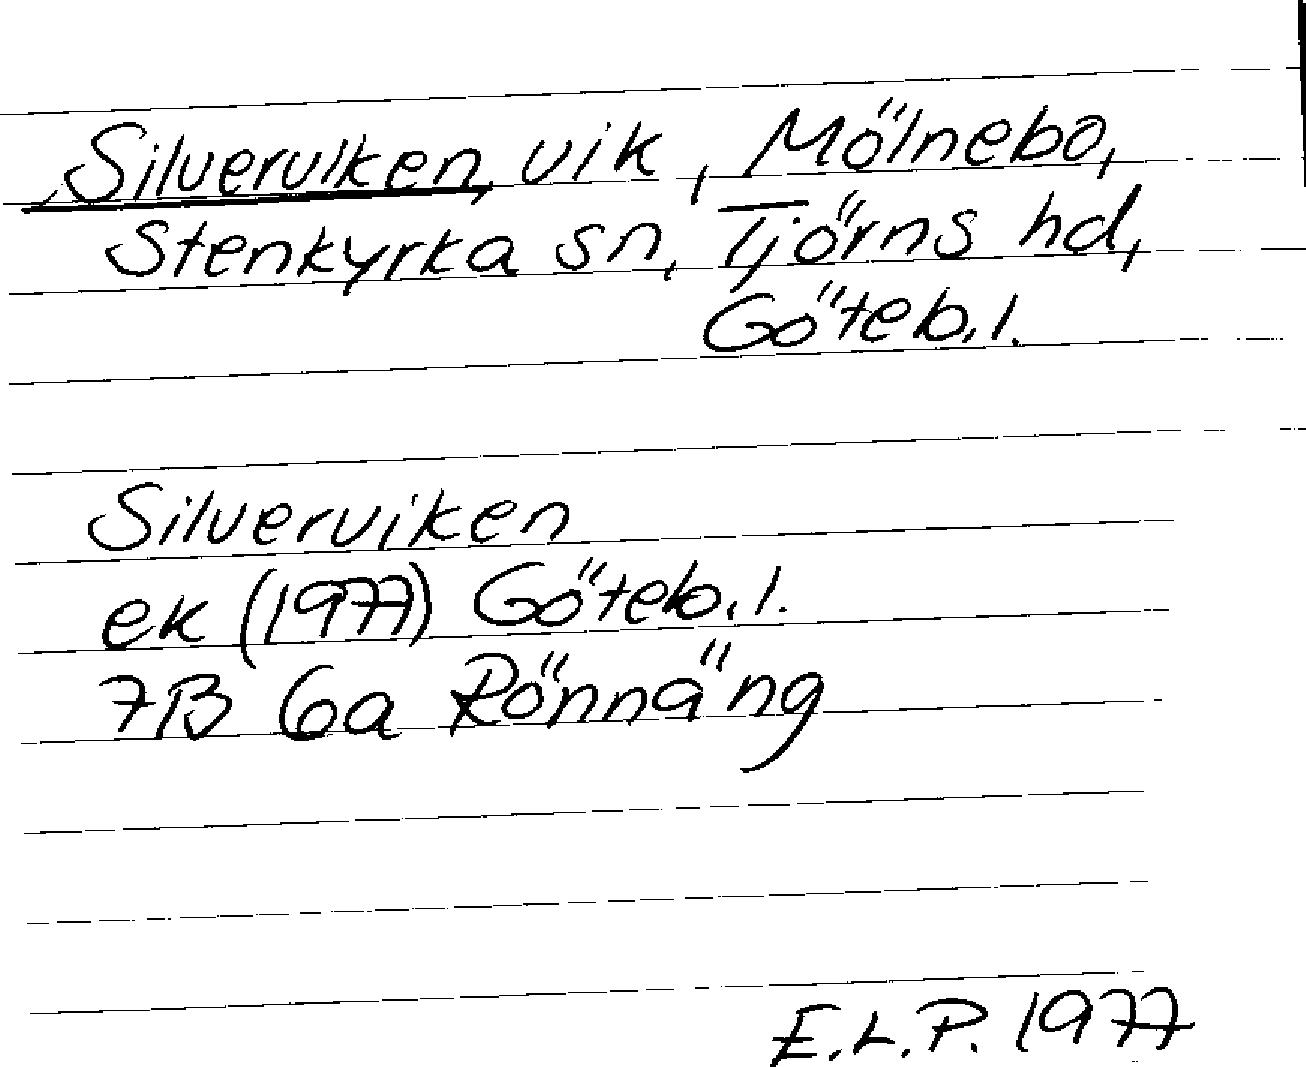 Silverviken, vik, Mölnebo,
Stenkyrka sn, Tjörns hd,
Göteb.l.
Silverviken
ek (1977) Göteb.l.
7B 6a Rönnäng
E.L.P. 1977